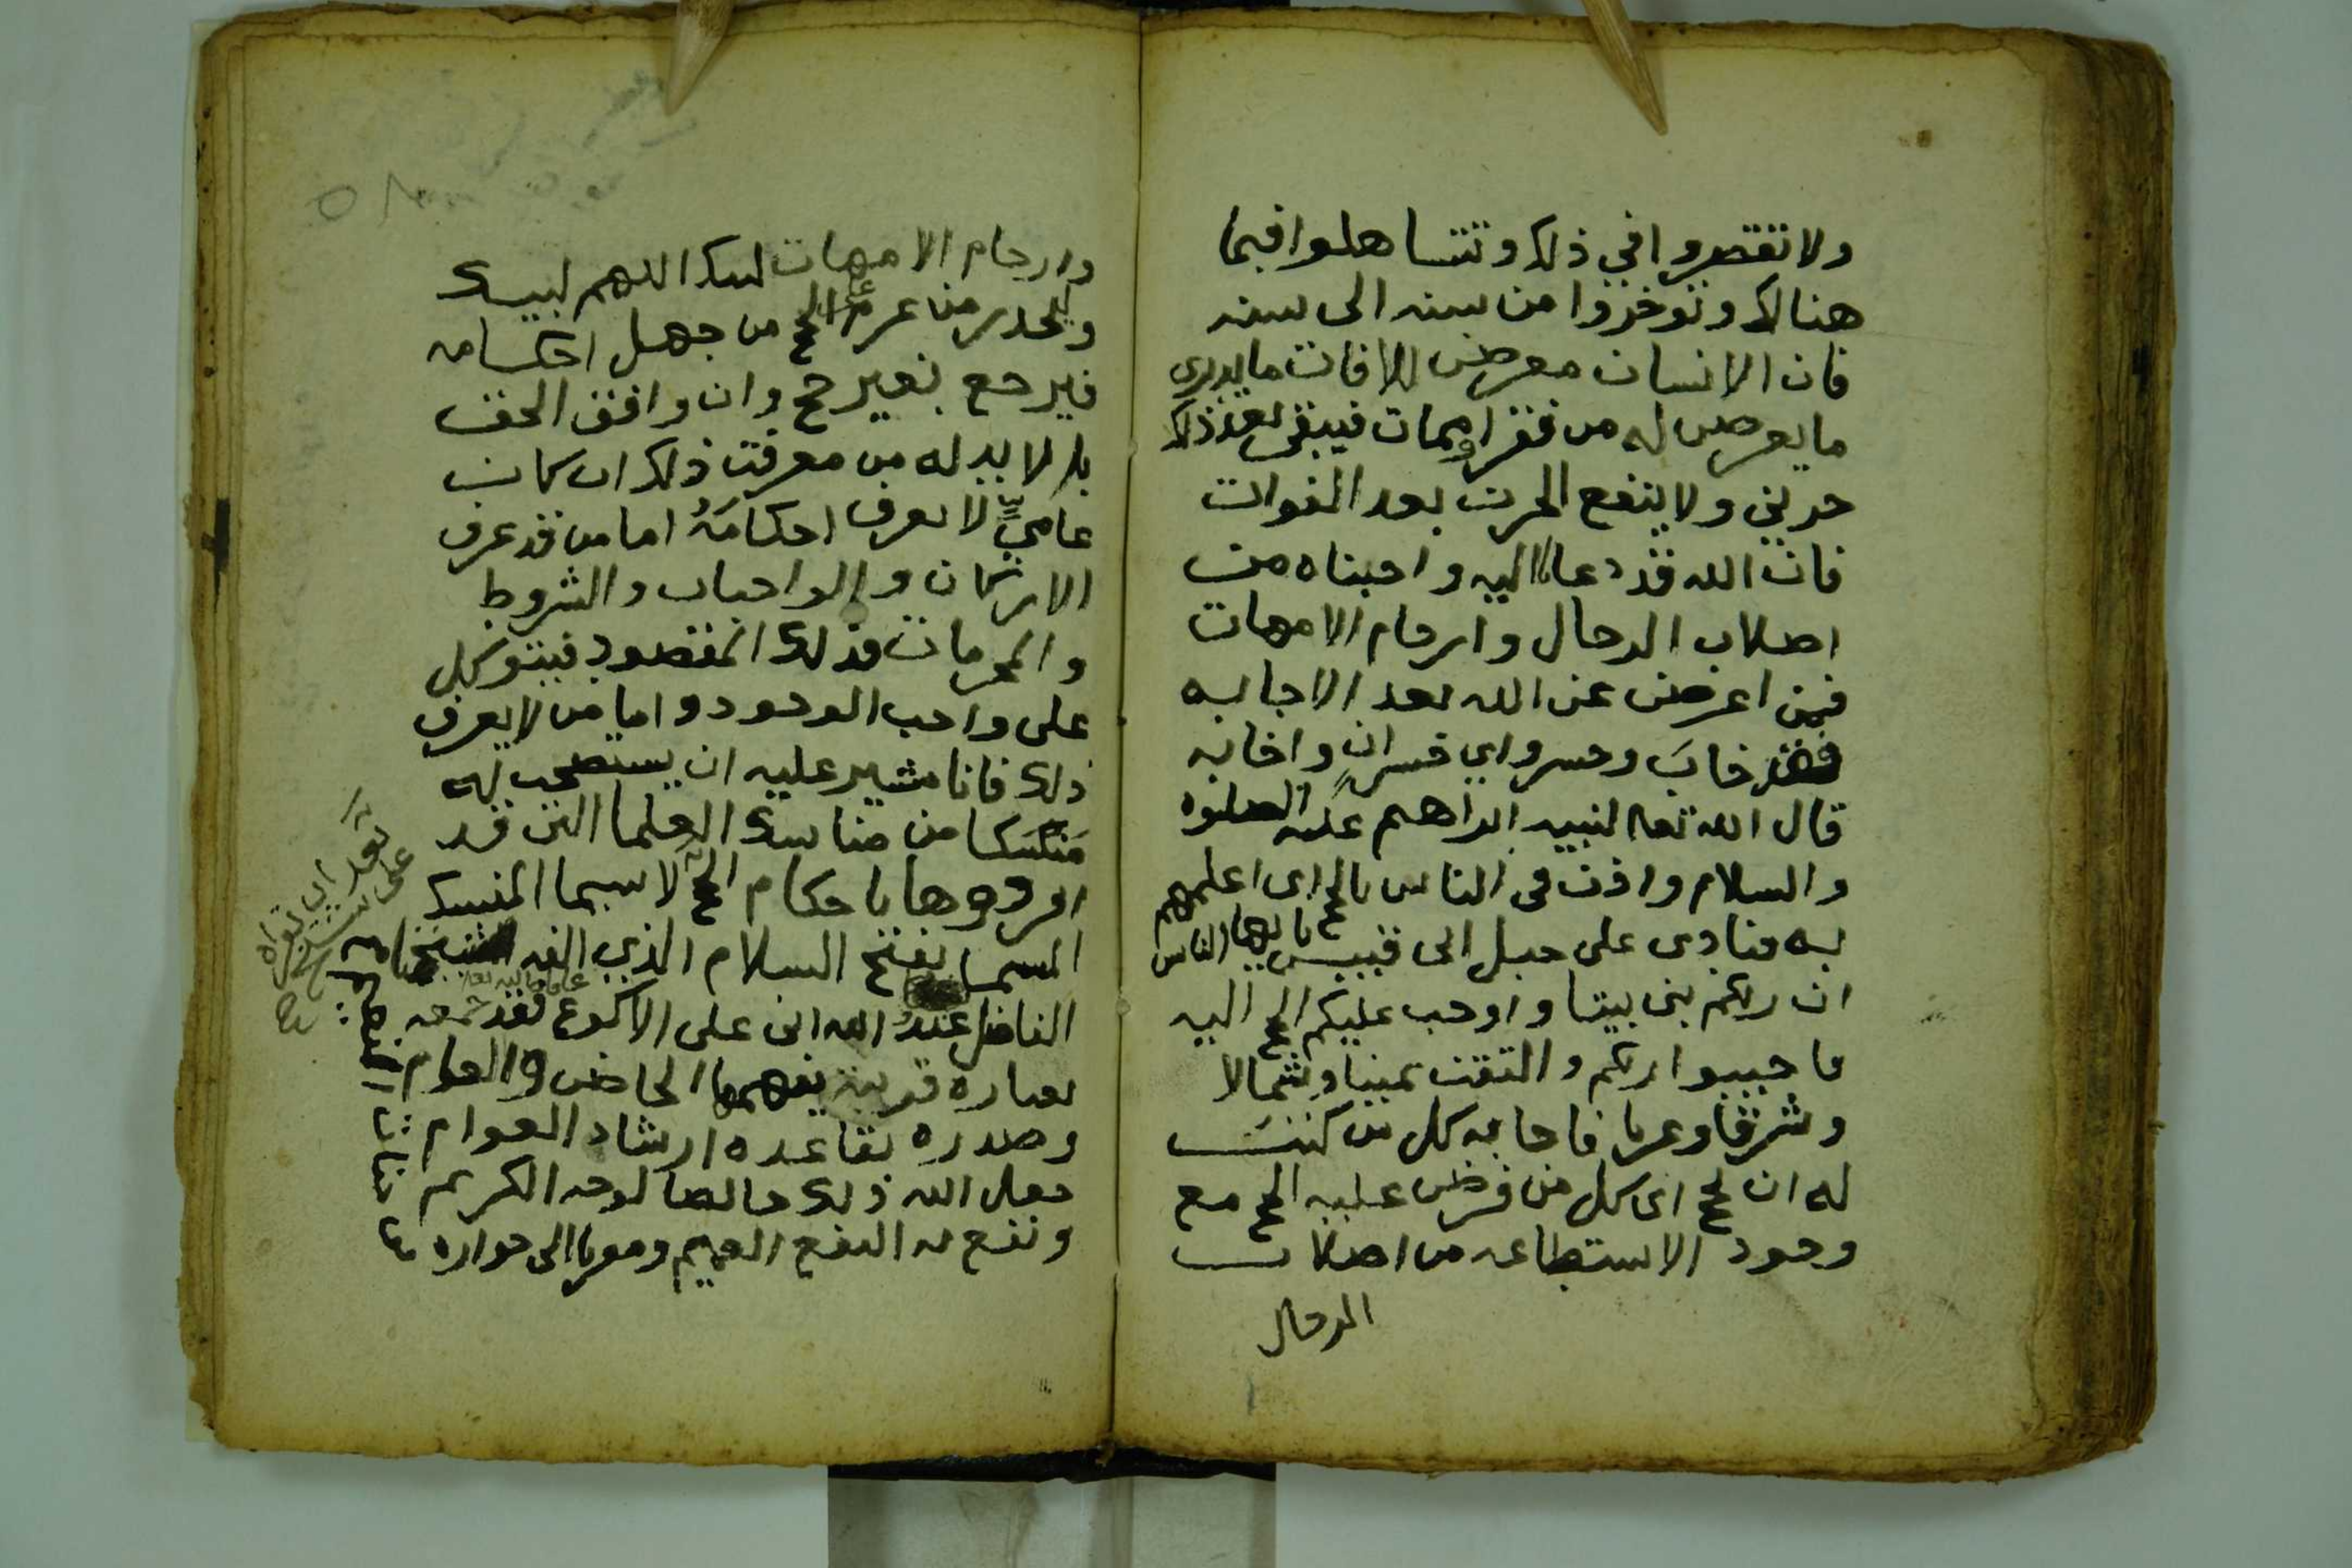 ولا تقصروا في ذلك وتتساهلوا فيما
هنالك وتوخروا من سنه الى سنه
فان الانسان معرض للافات ما يدري
ما يعرض له من فقر او ممات فيبقى بعد ذلك
حزين ولا ينفع الحزن بعد الفوات
فان الله قد دعانا اليه واجبناه من
اصلاب الرجال وارحام الامهات
فمن اعرض عن الله بعد الاجابه
فقد خاب وخسر واي خسران واخابه
قال الله تعالى لنبيه ابراهيم عليه الصلوه
والسلام واذن في الناس بالحج اى اعلمهم
به فنادى على جبل ابى قبيس يا ايها الناس
ان ربكم بنى بيتا واوجب عليكم الحج اليه
فاجيبوا ربكم والتفت يمينا وشمالا
وشرقا وغربا فاجابه كل من كتب
له ان يحج اى كل من فرض عليه الحج مع
وجود الاستطاعه من اصلاب
الرجال
وارحام الامهات لبيك اللهم لبيك
وليحذر من عزم على الحج من جهل احكامه
فيرجع بغير حج وان وافق الحق
بل لا بد له من معرفت ذلك ان كان
عامي لا يعرف احكامه اما من قد عرف
الاركان والواجبات والشروط
والمحرمات فذلك المقصود فيتوكل
على واجب الوجود واما من لا يعرف
ذلك فانا مشير عليه ان يستصحب له
منسكا من مناسك العلما التى قد
افردوها باحكام الحج لا سيما المنسك
المسما بفتح السلام الذي الفه
الفاضل عبد الله ابن على الاكوع فقد جمعه
بعباره قريبة يفهمها الخاص والعام
وصدره بقاعده ارشاد العوام
جعل الله ذلك خالصا لوجه الكريم
ونفع به النفع العميم ومقربا الى جواره
بعد ان قراه
على شيخ